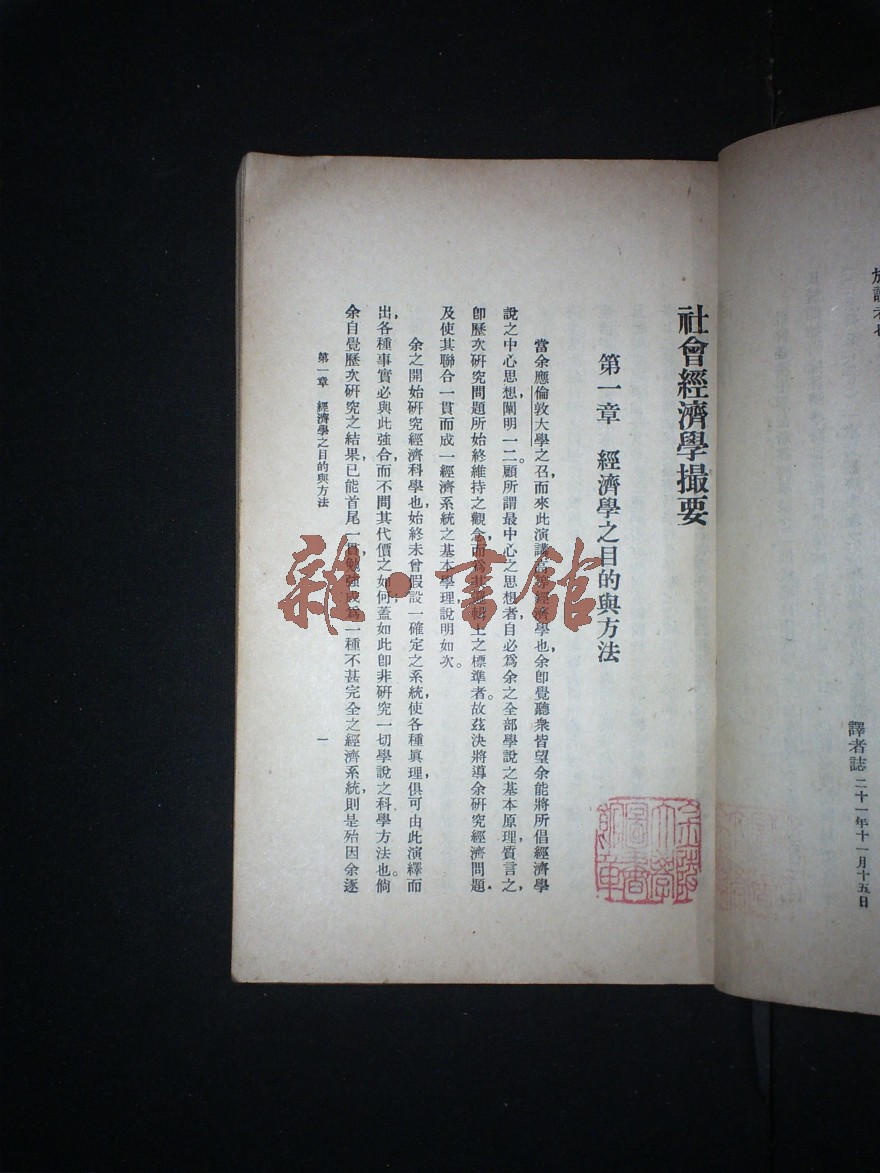 於讀者也
譯者誌 二十一年十一月十五日
社會經濟學撮要
第一章 經濟學之目的與方法
當余應倫敦大學之召,而來此演講高深經濟學也,余卽覺聽衆皆望余能將所倡經濟學
說之中心思想,闡明一二。顧所謂最中心之思想者,自必爲余之全部學說之基本原理,質言之,
卽歷次研究問題所始終維持之觀念,而爲其邏輯上之標準者。故茲決將導余研究經濟問題,
及使其聯合一貫而成一經濟系統之基本學理,說明如次。
余之開始研究經濟科學也,始終未曾假設一確定之系統,使各種眞理,俱可由此演繹而
出,各種事實必與此強合,而不問其代價之如何;蓋如此卽非研究一切學說之科學方法也。倘
余自覺歷次研究之結果,已能首尾一貫,勉強成爲一種不甚完全之經濟系統,則是殆因余逐
第一章 經濟學之目的與方法
一
雜·書館